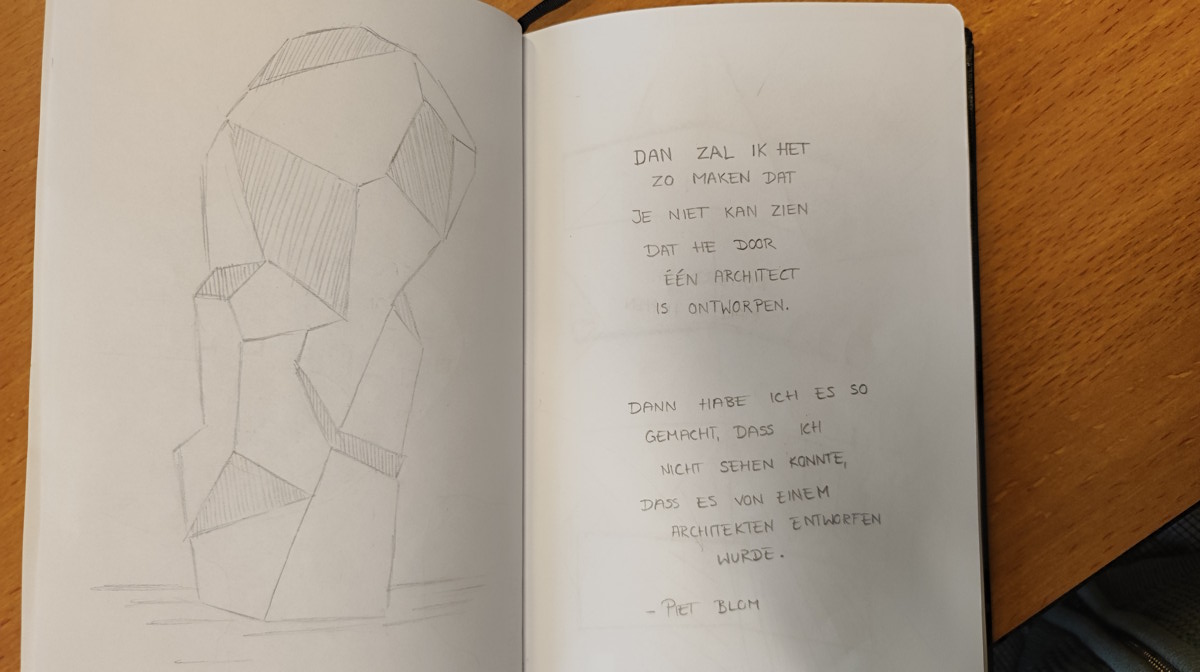 DAN ZAL IK HET
ZO MAKEN DAT
JE NIET KAN ZIEN
DAT HE DOOR
ÉÉN ARCHITECT
IS ONTWORPEN.
DANN HABE ICH ES SO
GEMACHT, DASS ICH
NICHT SEHEN KONNTE,
DASS ES VON EINEM
ARCHITEKTEN ENTWORFEN
WURDE.
- PIET BLOM